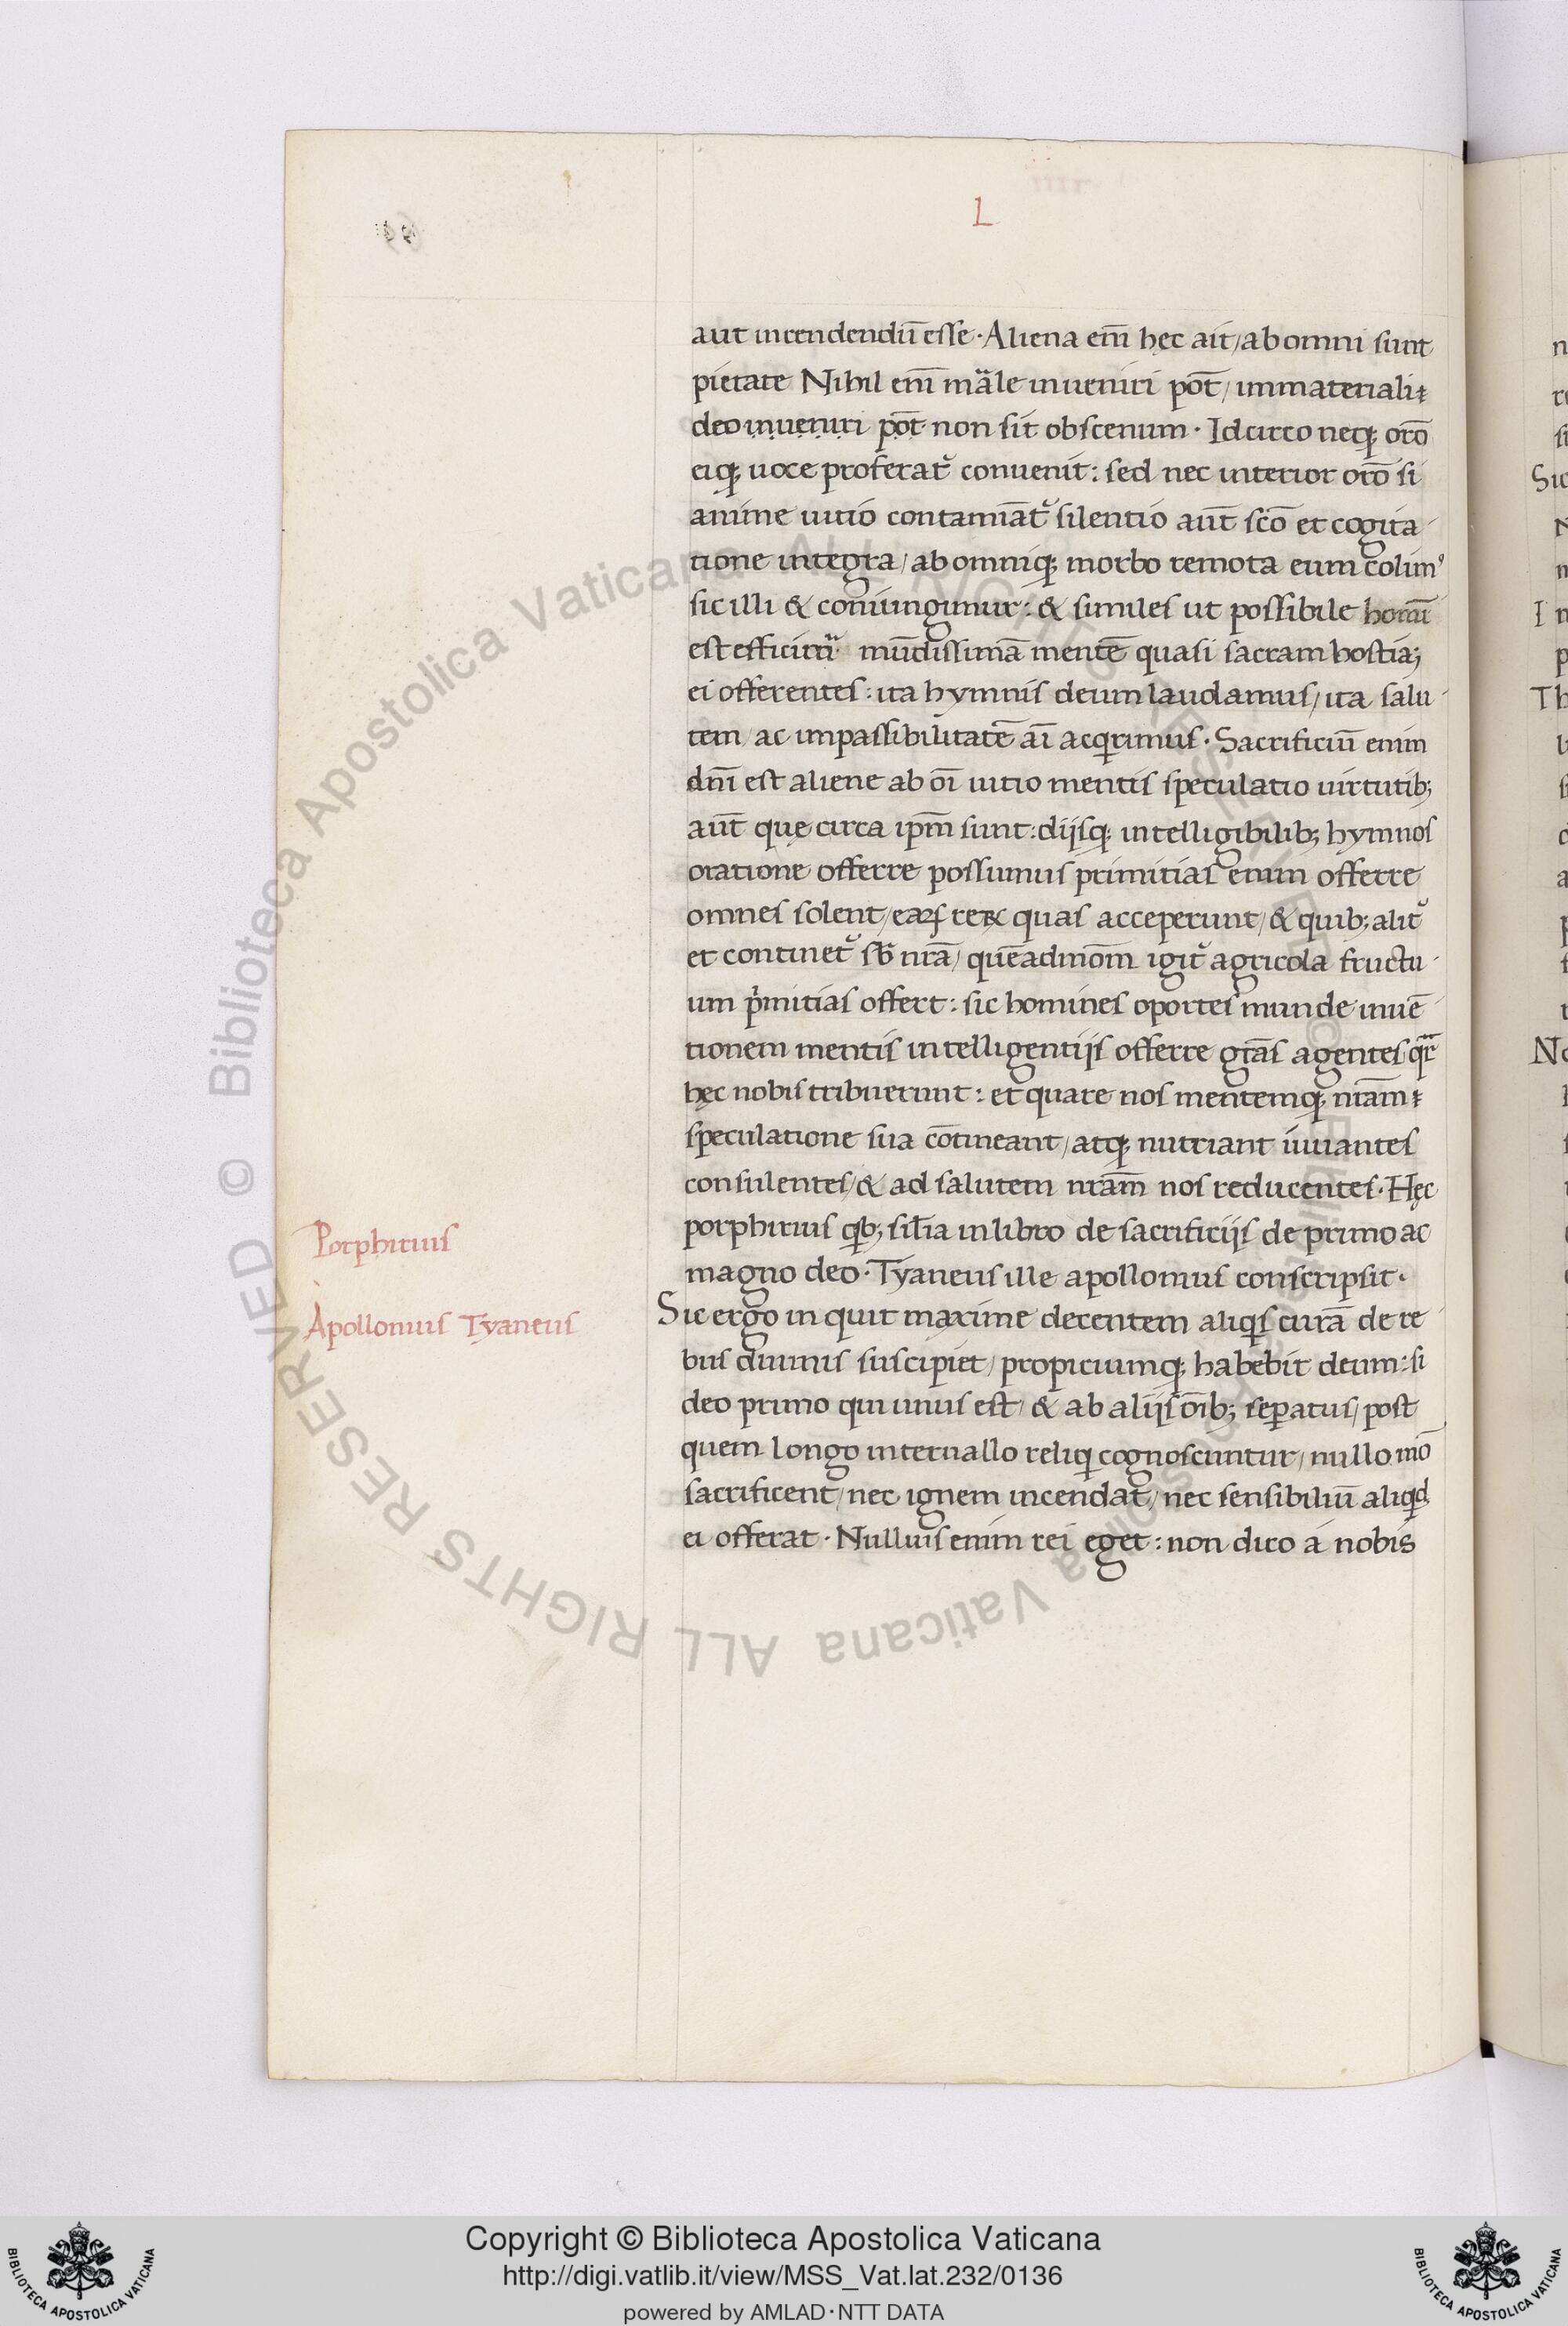 L
aut incendendū esse · Aliena em̄ hęc ait / ab omni sunt
pietate Nihil enī mãle inueniri pot̄ / immateriali⁊
deo inueniri pot̄ non sit obscenum · Idcirco neq; orō
eiq; uoce proferat᷑ conuenit : sed nec interior orō si
anime uitio contamīat᷑ silentio aut̄ scō et cogita-
tione integra / ab omniq; morbo remota eum colimꝰ
sic illi & coniungimur : & similes ut possibile homī
est efficimᷓ mūdissimā mentē quasi sacram hostiā;
ei offerentes : ita hymnis deum laudamus / ita salu-
tem / ac impassibilitatē aī acq̄rimus · Sacrificiū enim
dnī est aliene ab oī uitio mentis speculatio uirtutib;
aut̄ quę circa ipm̄ sunt : dijsq; intelligibilib; hymnos
oratione offerre possumus primitias enim offerre
omnes solent / eaꝝ reꝝ quas acceperunt / & quib; alit᷑
et continet᷑ sb̄ nrā / quēadmom̄ igit᷑ agricola fructu-
um pͥmitias offert : sic homines oportet munde inuē-
tionem mentis intelligentijs offerre grās agentes qrᷓ
hęc nobis tribuerunt : et quare nos mentemq; nrām ⁊
speculatione sua cōtineant / atq; nutriant iuuantes
consulentes / & ad salutem nrām nos reducentes · Hęc
porphirius qb; sil̄ia in libro de sacrificijs de primo ac
magno deo · Tyaneus ille apollonius conscripsit ·
Sic ergo inquit maxime decentem aliqͥs curā de re-
bus diuinis suscipiet / propiciumq; habebit deum : si
deo primo qui unus est / & ab alijs oīb; sep̄atus / post
quem longo interuallo reliqͥ cognoscuntur / nullo mō
sacrificent / nec ignem incendat / nec sensibiliū aliqͥd
ei offerat · Nullius enim rei eget : non dico a nobis
Porphirius
Apollonius Tyaneus
© Biblioteca Apostolica Vaticana ALL RIGHTS RESERVED
Copyright © Biblioteca Apostolica Vaticana
http://digi.vatlib.it/view/MSS_Vat.lat.232/0136
powered by AMLAD · NTT DATA
BIBLIOTECA APOSTOLICA VATICANA
BIBLIOTECA APOSTOLICA VATICANA